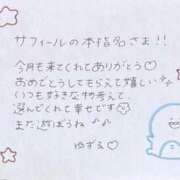 サフィールの本指名さま!!
今月も来てくれてありがとう♡
おめでとうしてもらえて嬉しい
いつも好きな物考えて
選んでくれて幸せです
また遊ぼうね
ゆずる♡